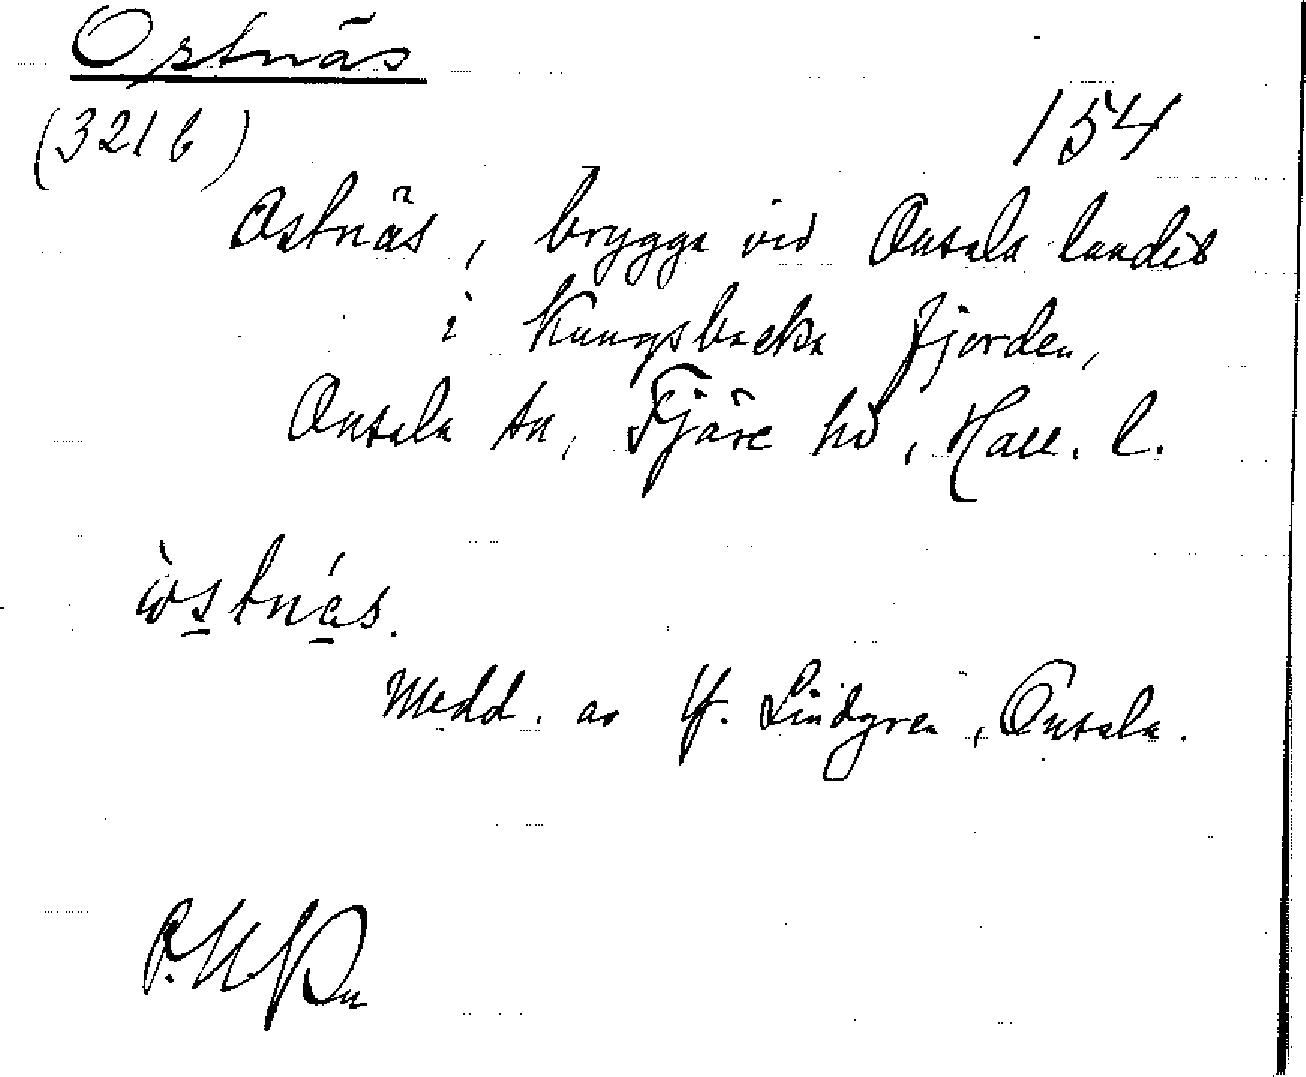 Ostnäs
(321 b)
154
Ostnäs, brygga vid Onsala landet
i Kungsbacka fjorden,
Onsala sn, Fjäre hd, Hall. l.
Medd. av Lindgren, Onsala.